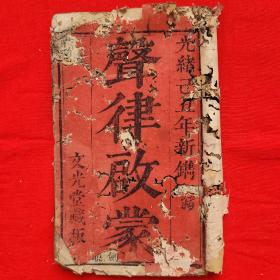 光緒己丑年新鐫
聲律啟蒙
文光堂藏板